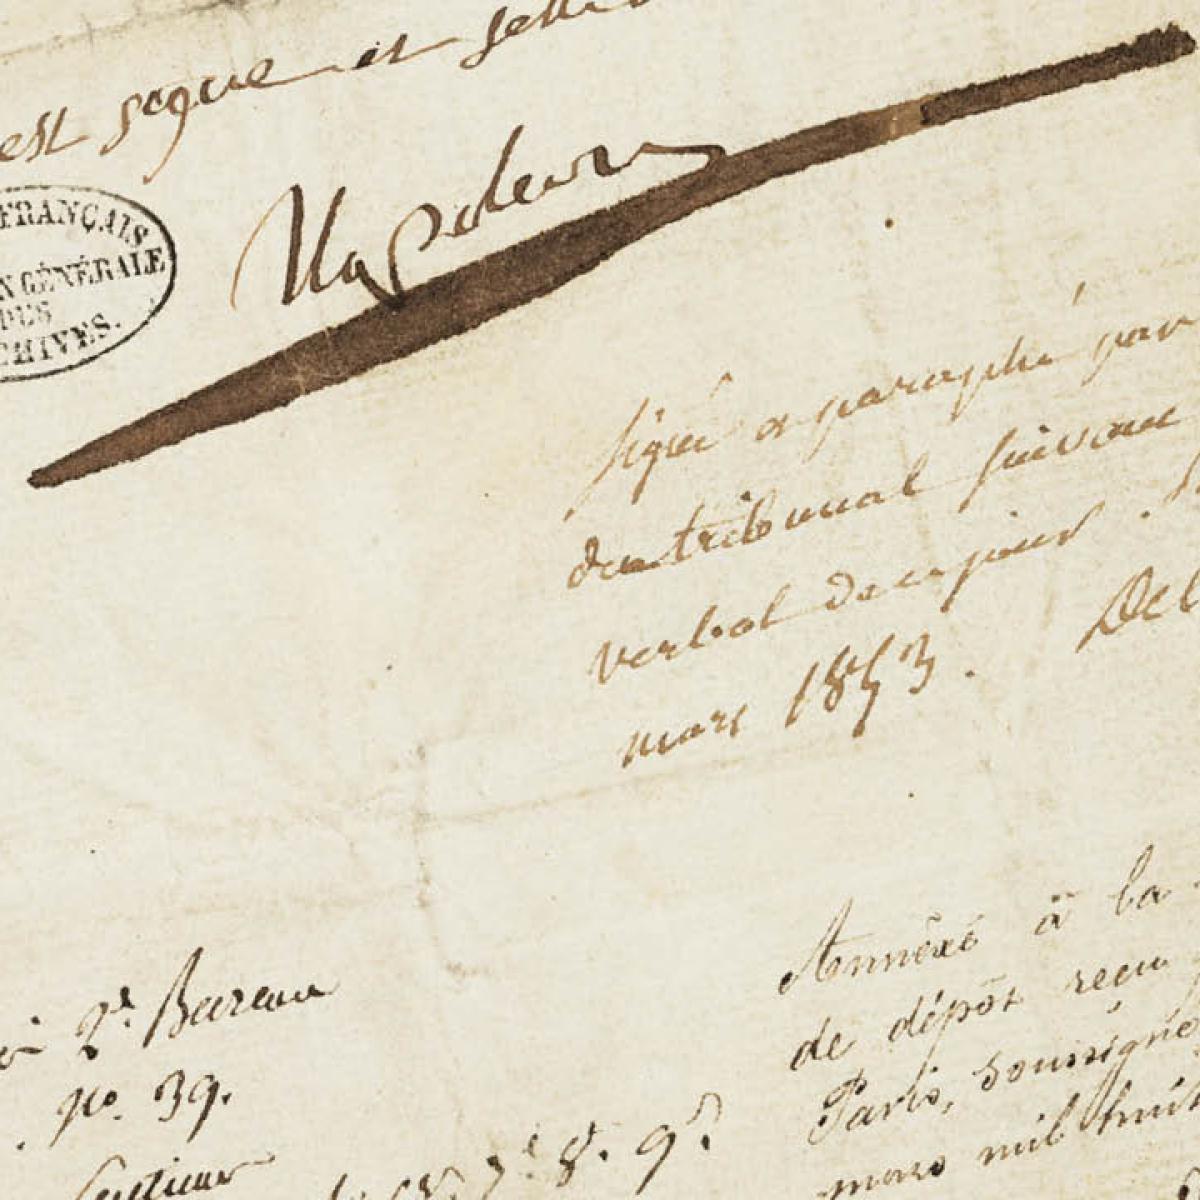 est signé et scellé
FRANÇAIS
GÉNÉRALE
DES
ARCHIVES.
Napoléon
signé et paraphé par
du tribunal suivant
verbal de ce jour
mars 1853.
2e Bureau
no. 39.
7e 8. 9e
Annéxé à la
de dépôt recu
Paris, soussigné
mars mil huit